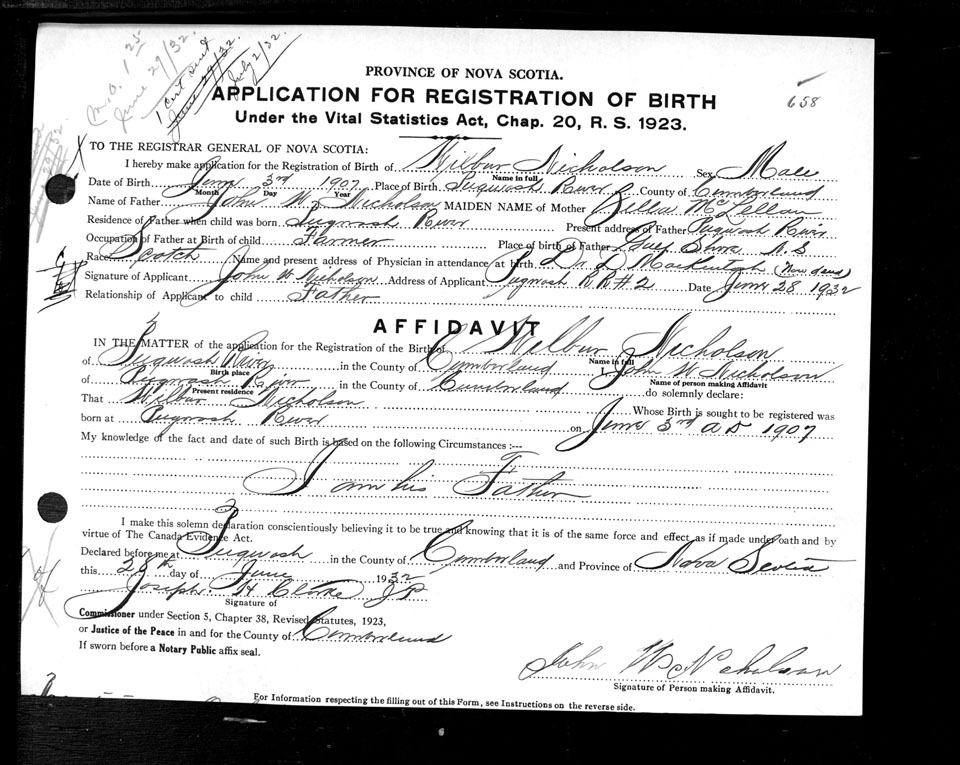 M.O. 1 25
June 29/32
1 Cert sent
June 29/32
July 2/32
658
PROVINCE OF NOVA SCOTIA.
APPLICATION FOR REGISTRATION OF BIRTH
Under the Vital Statistics Act, Chap. 20, R. S. 1923.
TO THE REGISTRAR GENERAL OF NOVA SCOTIA:
I hereby make application for the Registration of Birth of Wilbur Nicholson Sex Male
Name in full
Date of Birth June 3rd 1907 Place of Birth Pugwash River County of Cumberland
Month Day Year
Name of Father John W Nicholson MAIDEN NAME of Mother Bella McLellan
Residence of Father when child was born Pugwash River Present address of Father Pugwash River
Occupation of Father at Birth of child Farmer Place of birth of Father Gulf Shore N S
Race Scotch Name and present address of Physician in attendance at birth Dr D Mackintosh (now dead)
Signature of Applicant John W Nicholson Address of Applicant Pugwash RR#2 Date June 28 1932
Relationship of Applicant to child Father
AFFIDAVIT
IN THE MATTER of the application for the Registration of the Birth of Wilbur Nicholson
Name in full
of Pugwash River in the County of Cumberland I, John W Nicholson
Birth place Name of person making Affidavit
of Pugwash River in the County of Cumberland do solemnly declare:
Present residence
That Wilbur Nicholson Whose Birth is sought to be registered was
born at Pugwash River on June 3rd A D 1907
My knowledge of the fact and date of such Birth is based on the following Circumstances :---
I am his Father
I make this solemn declaration conscientiously believing it to be true and knowing that it is of the same force and effect as if made under oath and by
virtue of The Canada Evidence Act.
Declared before me at Pugwash in the County of Cumberland and Province of Nova Scotia
this 28th day of June 1932
Joseph H Clarke JP
Signature of
Commissioner under Section 5, Chapter 38, Revised Statutes, 1923,
or Justice of the Peace in and for the County of Cumberland
If sworn before a Notary Public affix seal.
John W Nicholson
Signature of Person making Affidavit.
For Information respecting the filling out of this Form, see Instructions on the reverse side.